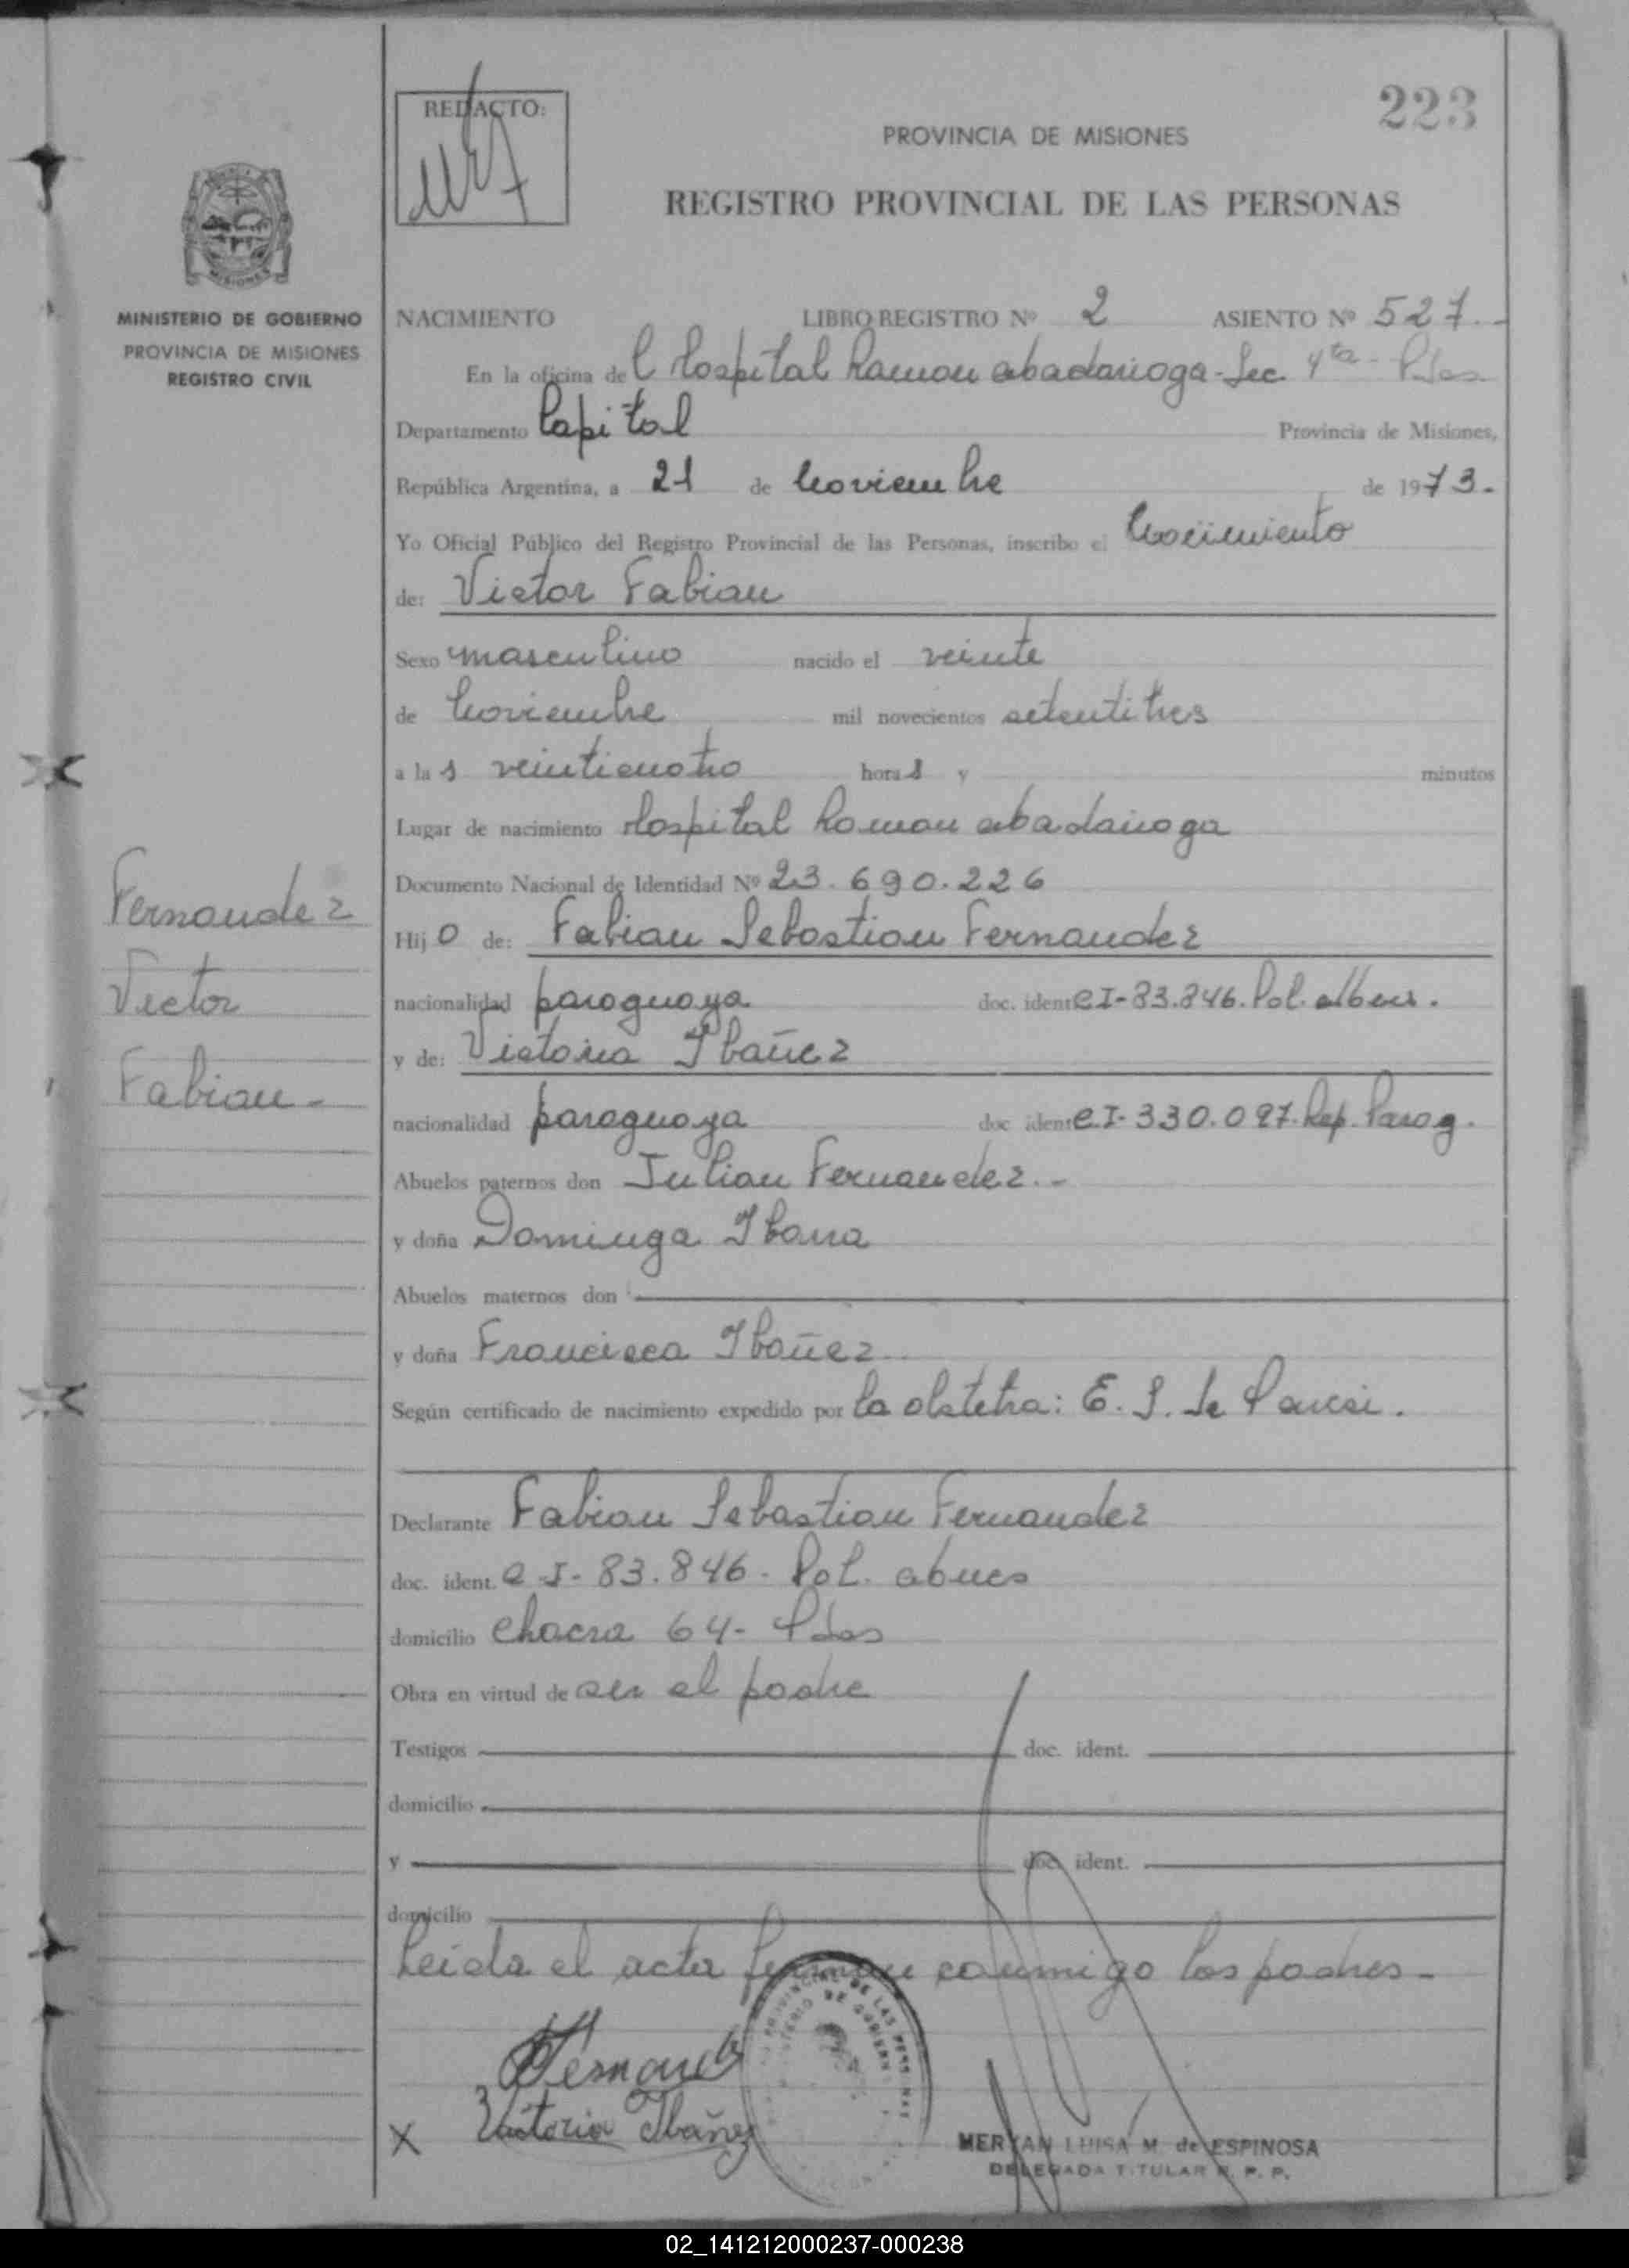 223
REDACTO:
PROVINCIA DE MISIONES
REGISTRO PROVINCIAL DE LAS PERSONAS
MISIONES
MINISTERIO DE GOBIERNO
PROVINCIA DE MISIONES
REGISTRO CIVIL
NACIMIENTO LIBRO REGISTRO Nº 2 ASIENTO Nº 527.-
En la oficina del Hospital Ramon abadarioga-Sec. 4ta- Pdas
Departamento Capital Provincia de Misiones,
República Argentina, a 21 de Noviembre de 1973.-
Yo Oficial Público del Registro Provincial de las Personas, inscribo el Nacimiento
de: Victor Fabian
Sexo masculino nacido el veinte
de Noviembre mil novecientos setentitres
a las veinticuatro horas y minutos
Lugar de nacimiento Hospital Ramon abadarioga
Documento Nacional de Identidad Nº 23.690.226
Hijo de: Fabian Sebastian Fernandez
nacionalidad paraguaya doc. ident CI-83.846. Pol.
y de: Victoria Ibañez
nacionalidad paraguaya doc ident CI-330.097. Rep. Parag.
Abuelos paternos don Julian Fernandez.-
y doña Dominga Ibarra
Abuelos maternos don
y doña Francisca Ibañez
Según certificado de nacimiento expedido por la obstetra: E. S. de
Declarante Fabian Sebastian Fernandez
doc. ident. CI-83.846- Pol.
domicilio Chacra 64- Pdas
Obra en virtud de ser el padre
Testigos doc. ident.
domicilio
y doc. ident.
domicilio
Leida el acta firman conmigo los padres-
Fernandez
Victor
Fabian-
Victoria Ibañez
X
MERYAN LUISA M. de ESPINOSA
DELEGADA TITULAR R. P. P.
02_141212000237-000238